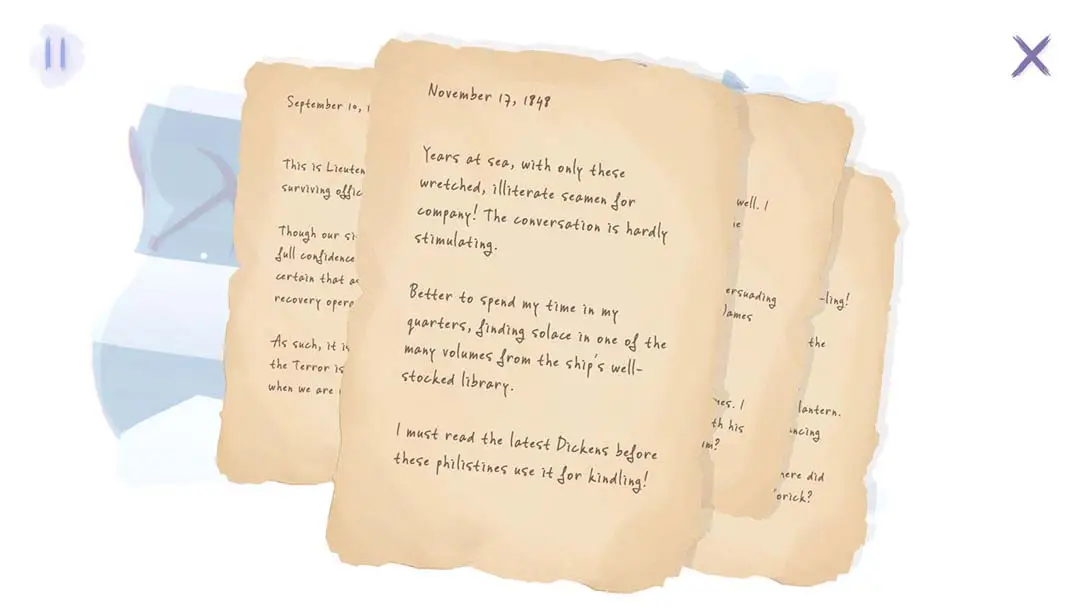 September 10,
This is
surviving
Though our
full confidence
certain that
recovery
As such, it is
the Terror is
when we are
November 17, 1848
Years at sea, with only these
wretched, illiterate seamen for
company! The conversation is hardly
stimulating.
Better to spend my time in my
quarters, finding solace in one of the
many volumes from the ship's well-
stocked library.
I must read the latest Dickens before
these philistines use it for kindling!
well. I
I
his
the
lantern.
did